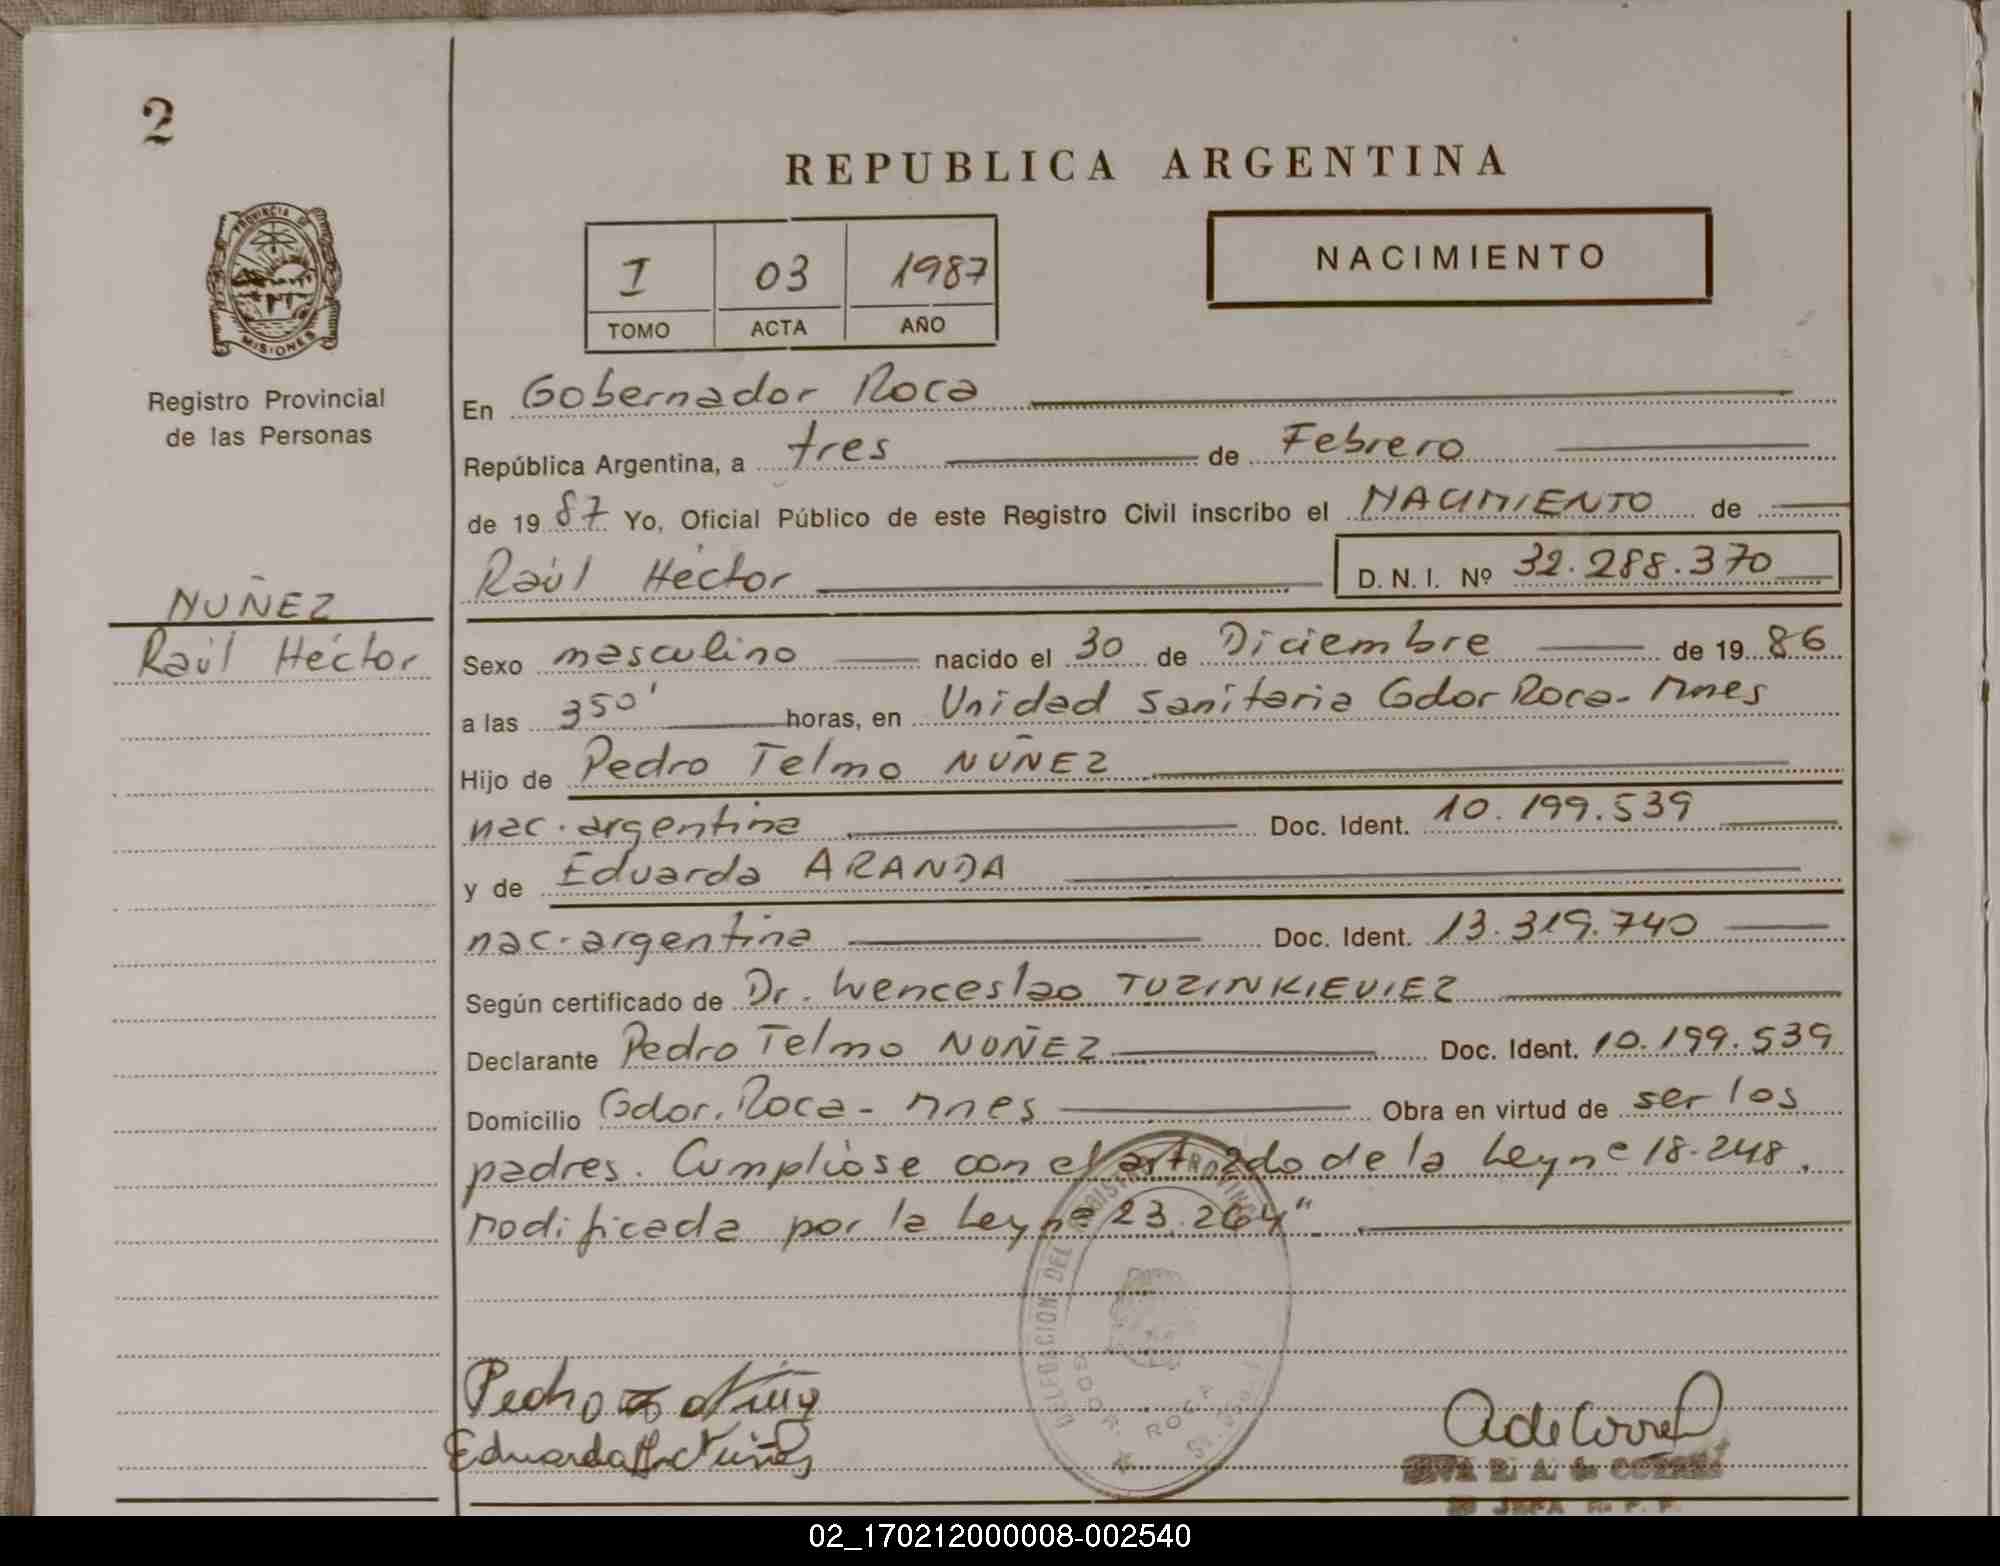 2
REPUBLICA ARGENTINA
PROVINCIA DE
MISIONES
Registro Provincial
de las Personas
I 03 1987
TOMO ACTA AÑO
NACIMIENTO
En Gobernador Roca
República Argentina, a tres de Febrero
de 1987 Yo, Oficial Público de este Registro Civil inscribo el NACIMIENTO de
Raúl Héctor D. N. I. Nº 32.288.370
NUÑEZ
Raúl Héctor
Sexo masculino nacido el 30 de Diciembre de 1986
a las 350' horas, en Unidad Sanitaria Gdor Roca- Mnes
Hijo de Pedro Telmo NUÑEZ
nac. argentina Doc. Ident. 10.199.539
y de Eduarda ARANDA
nac. argentina Doc. Ident. 13.319.740
Según certificado de Dr. Wenceslao TUZINKIEVIEZ
Declarante Pedro Telmo NUÑEZ Doc. Ident. 10.199.539
Domicilio Gdor. Roca- Mnes Obra en virtud de ser los
padres. Cumplióse con el art 2do de la Ley nº 18.248,
modificada por la Ley nº 23.264"
DELEGACION DEL REGISTRO PROVINCIAL
GDOR. ROCA
Pedro T Núñez
Eduarda A de Núñez
02_170212000008-002540